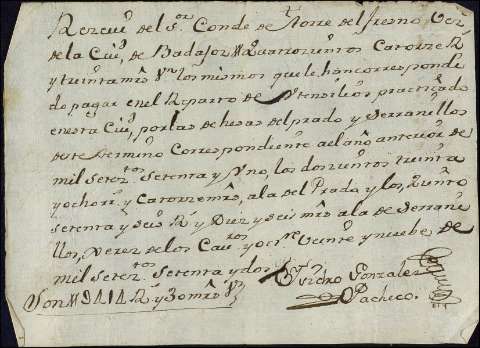 Rezcui del s.or Conde de Torre del fresno Vez.
dela Ciu.d de Badajoz quatrozientos Catorze R.
y treinta mrs. V.n los mismos que le han correspondi
do pagar en el Reparto de Vtensilios practicado
en esta Ciu.d por las dehesas del prado y Serranillos
de este termino Correspondiente al año anterior de
mil Setez.tos Setenta y Vno, los dozientos treinta
y ocho rr.s y Catorze mrs. ala del Prado y los, Ziento
setenta y seis R.s y Diez y seis mrs. ala de Serrani
llos, Xerez de los Cau.ros y oct.re Veinte y nuebe de
mil Setez.tos Setenta y dos
Ysidro Gonzalez
Pacheco
Son 414 R.s y 30 mrs. V.n